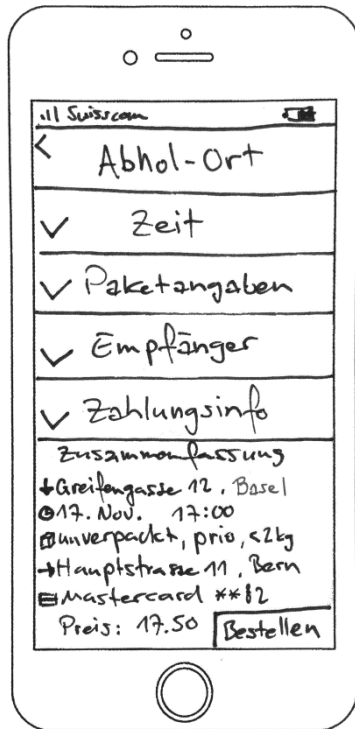 Suisscom
Abhol-Ort
Zeit
Paketangaben
Empfänger
Zahlungsinfo
Zusammenfassung
Greifengasse 12, Basel
17. Nov. 17:00
unverpackt, prio, <2kg
Hauptstrasse 11, Bern
Mastercard **82
Preis: 17.50 Bestellen